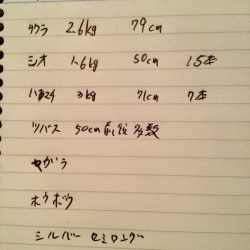 サワラ 2.6kg 79cm
シオ 1.6kg 50cm 15本
ハマチ 3kg 71cm 7本
ツバス 50cm前後 多数
ヤガラ
ホウボウ
シルバー セミロング